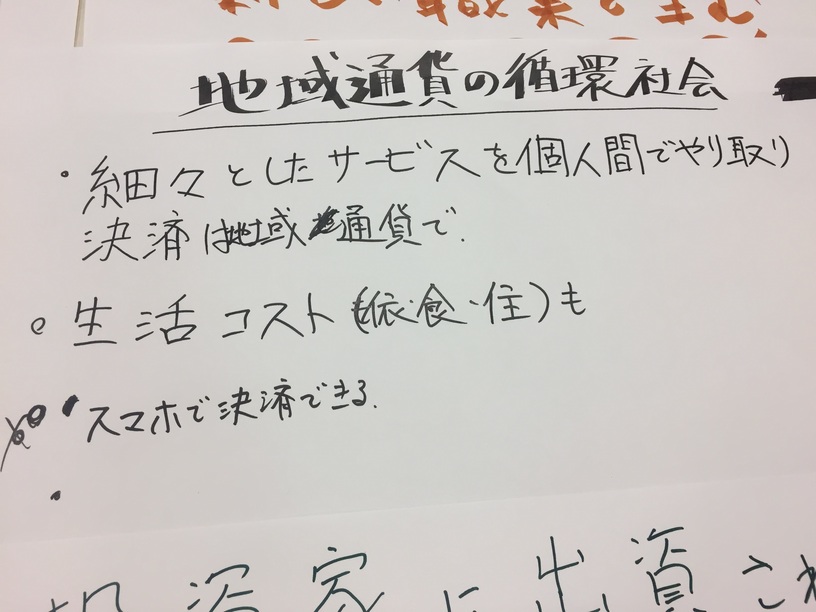 地域通貨の循環社会
・細々としたサービスを個人間でやり取り
決済は地域通貨で.
・生活コスト(依・食・住)も
・スマホで決済できる.
・
投資家に出資され